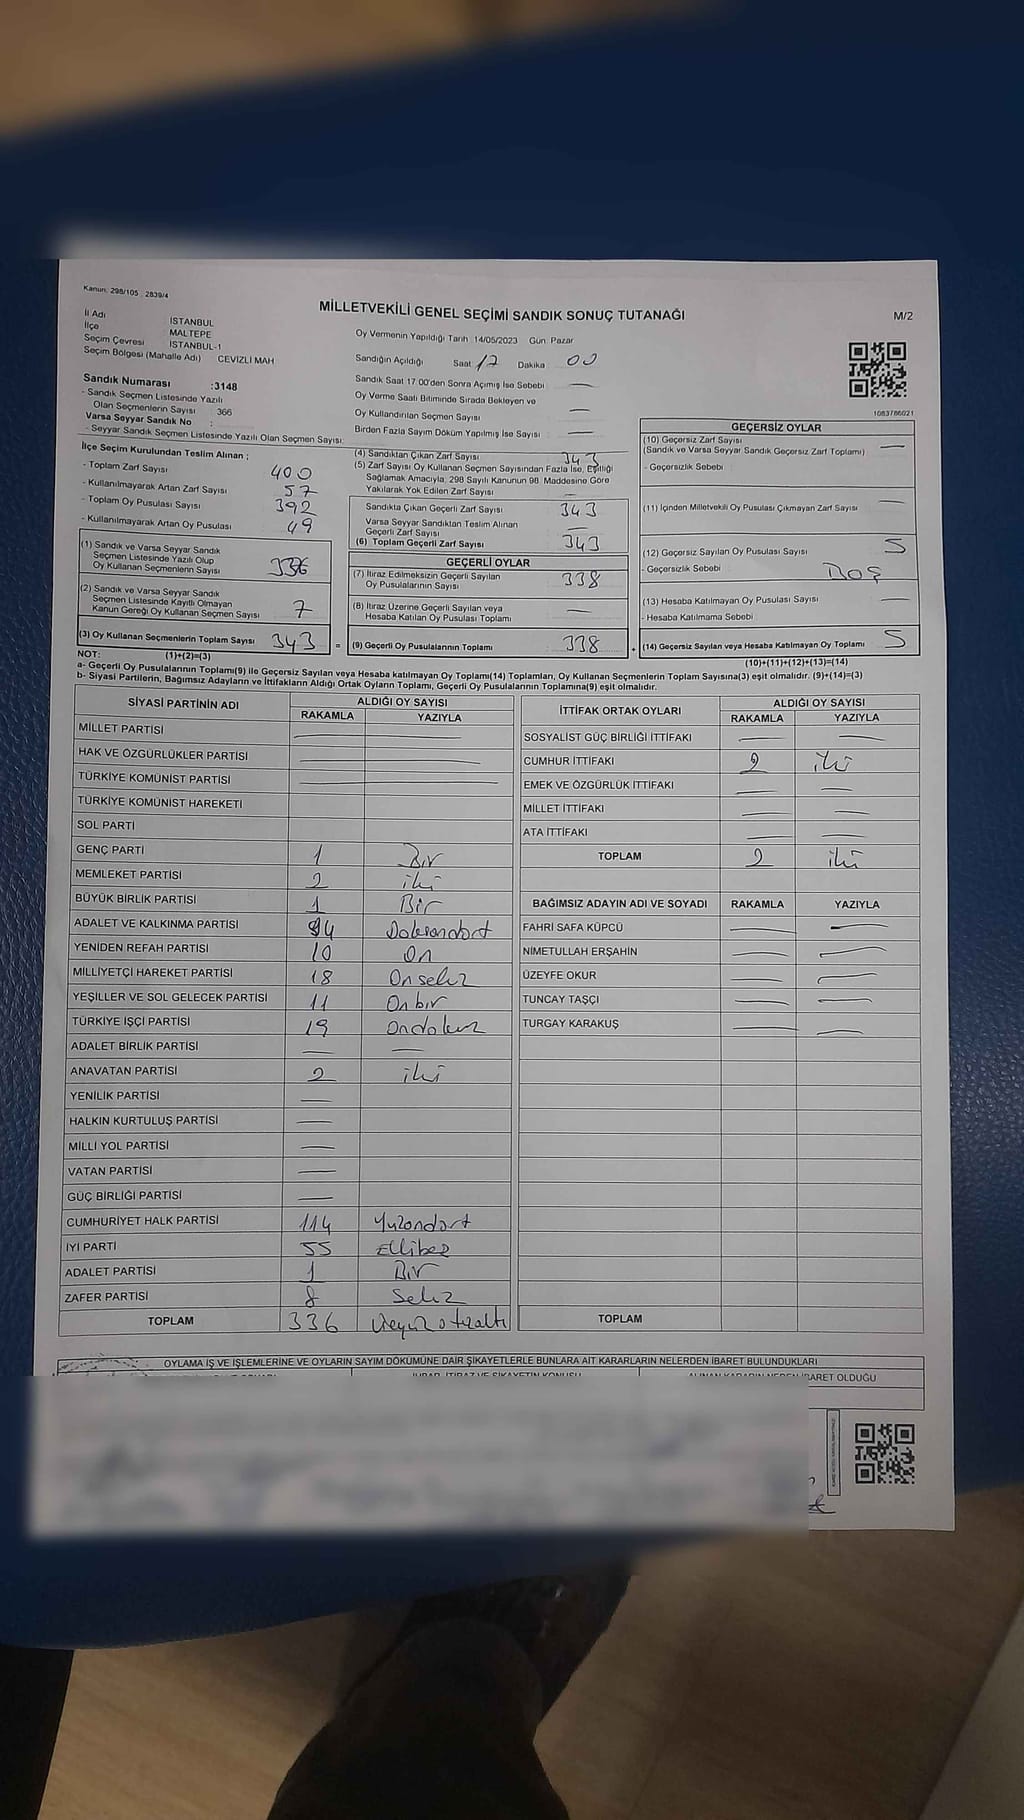 Kanun: 298/105 , 2839/4
MİLLETVEKİLİ GENEL SEÇİMİ SANDIK SONUÇ TUTANAĞI
M/2
İl Adı İSTANBUL
İlçe MALTEPE
Seçim Çevresi İSTANBUL-1
Seçim Bölgesi (Mahalle Adı) CEVİZLİ MAH
Sandık Numarası :3148
- Sandık Seçmen Listesinde Yazılı
Olan Seçmenlerin Sayısı : 366
Varsa Seyyar Sandık No :
- Seyyar Sandık Seçmen Listesinde Yazılı Olan Seçmen Sayısı:
Oy Vermenin Yapıldığı Tarih 14/05/2023 Gün: Pazar
Sandığın Açıldığı Saat: 17 Dakika : 00
Sandık Saat 17:00'den Sonra Açımış İse Sebebi : —
Oy Verme Saati Bitiminde Sırada Bekleyen ve
Oy Kullandırılan Seçmen Sayısı —
Birden Fazla Sayım Döküm Yapılmış İse Sayısı : —
1083786021
İlçe Seçim Kurulundan Teslim Alınan ;
- Toplam Zarf Sayısı 400
- Kullanılmayarak Artan Zarf Sayısı 57
- Toplam Oy Pusulası Sayısı 392
- Kullanılmayarak Artan Oy Pusulası 49
(1) Sandık ve Varsa Seyyar Sandık
Seçmen Listesinde Yazılı Olup
Oy Kullanan Seçmenlerin Sayısı 336
(2) Sandık ve Varsa Seyyar Sandık
Seçmen Listesinde Kayıtlı Olmayan
Kanun Gereği Oy Kullanan Seçmen Sayısı 7
(3) Oy Kullanan Seçmenlerin Toplam Sayısı 343 =
(4) Sandıktan Çıkan Zarf Sayısı 343
(5) Zarf Sayısı Oy Kullanan Seçmen Sayısından Fazla İse, Eşitliği
Sağlamak Amacıyla, 298 Sayılı Kanunun 98. Maddesine Göre
Yakılarak Yok Edilen Zarf Sayısı —
Sandıkta Çıkan Geçerli Zarf Sayısı 343
Varsa Seyyar Sandıktan Teslim Alınan
Geçerli Zarf Sayısı —
(6) Toplam Geçerli Zarf Sayısı 343
GEÇERLİ OYLAR
(7) İtiraz Edilmeksizin Geçerli Sayılan
Oy Pusulalarının Sayısı 338
(8) İtiraz Üzerine Geçerli Sayılan veya
Hesaba Katılan Oy Pusulası Toplamı —
(9) Geçerli Oy Pusulalarının Toplamı 338 +
GEÇERSİZ OYLAR
(10) Geçersiz Zarf Sayısı —
(Sandık ve Varsa Seyyar Sandık Geçersiz Zarf Toplamı)
- Geçersizlik Sebebi :
(11) İçinden Milletvekili Oy Pusulası Çıkmayan Zarf Sayısı —
(12) Geçersiz Sayılan Oy Pusulası Sayısı 5
- Geçersizlik Sebebi : BOŞ
(13) Hesaba Katılmayan Oy Pusulası Sayısı —
- Hesaba Katılmama Sebebi :
(14) Geçersiz Sayılan veya Hesaba Katılmayan Oy Toplamı 5
NOT: (1)+(2)=(3)
(10)+(11)+(12)+(13)=(14)
a- Geçerli Oy Pusulalarının Toplamı(9) ile Geçersiz Sayılan veya Hesaba katılmayan Oy Toplamı(14) Toplamları, Oy Kullanan Seçmenlerin Toplam Sayısına(3) eşit olmalıdır. (9)+(14)=(3)
b- Siyasi Partilerin, Bağımsız Adayların ve İttifakların Aldığı Ortak Oyların Toplamı, Geçerli Oy Pusulalarının Toplamına(9) eşit olmalıdır.
SİYASİ PARTİNİN ADI ALDIĞI OY SAYISI
RAKAMLA YAZIYLA
MİLLET PARTİSİ — —
HAK VE ÖZGÜRLÜKLER PARTİSİ — —
TÜRKİYE KOMÜNİST PARTİSİ — —
TÜRKİYE KOMÜNİST HAREKETİ
SOL PARTİ
GENÇ PARTİ 1 Bir
MEMLEKET PARTİSİ 2 iki
BÜYÜK BİRLİK PARTİSİ 1 Bir
ADALET VE KALKINMA PARTİSİ 94 Doksandört
YENİDEN REFAH PARTİSİ 10 On
MİLLİYETÇİ HAREKET PARTİSİ 18 Onsekiz
YEŞİLLER VE SOL GELECEK PARTİSİ 11 Onbir
TÜRKİYE İŞÇİ PARTİSİ 19 Ondokuz
ADALET BİRLİK PARTİSİ — —
ANAVATAN PARTİSİ 2 iki
YENİLİK PARTİSİ —
HALKIN KURTULUŞ PARTİSİ —
MİLLİ YOL PARTİSİ —
VATAN PARTİSİ —
GÜÇ BİRLİĞİ PARTİSİ —
CUMHURİYET HALK PARTİSİ 114 Yüzondört
İYİ PARTİ 55 Ellibeş
ADALET PARTİSİ 1 Bir
ZAFER PARTİSİ 8 Sekiz
TOPLAM 336 Üçyüzotuzaltı
İTTİFAK ORTAK OYLARI ALDIĞI OY SAYISI
RAKAMLA YAZIYLA
SOSYALİST GÜÇ BİRLİĞİ İTTİFAKI — —
CUMHUR İTTİFAKI 2 iki
EMEK VE ÖZGÜRLÜK İTTİFAKI — —
MİLLET İTTİFAKI — —
ATA İTTİFAKI — —
TOPLAM 2 iki
BAĞIMSIZ ADAYIN ADI VE SOYADI RAKAMLA YAZIYLA
FAHRİ SAFA KÜPCÜ — —
NİMETULLAH ERŞAHİN — —
ÜZEYFE OKUR — —
TUNCAY TAŞÇI — —
TURGAY KARAKUŞ — —
TOPLAM
OYLAMA İŞ VE İŞLEMLERİNE VE OYLARIN SAYIM DÖKÜMÜNE DAİR ŞİKAYETLERLE BUNLARA AİT KARARLARIN NELERDEN İBARET BULUNDUKLARI